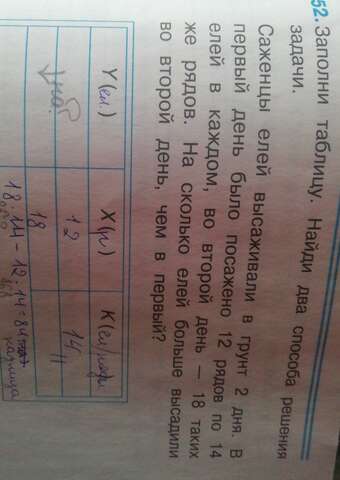 52. Заполни таблицу. Найди два способа решения
задачи.
Саженцы елей высаживали в грунт 2 дня. В
первый день было посажено 12 рядов по 14
елей в каждом, во второй день — 18 таких
же рядов. На сколько елей больше высадили
во второй день, чем в первый?
Y(ел.) X(р) K(ел/рядц)
12 14
18 "
18·14 - 12·14=84
разница